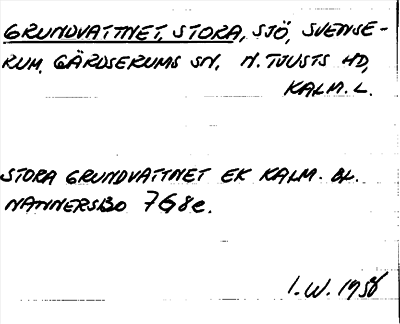 GRUNDVATTNET, STORA, SJÖ, SVENSE-
RUM, GÄRDSERUMS SN, N. TJUSTS HD,
KALM. L.
STORA GRUNDVATTNET EK KALM. BL.
NANNERSBO 7G8e.
I.W. 1956